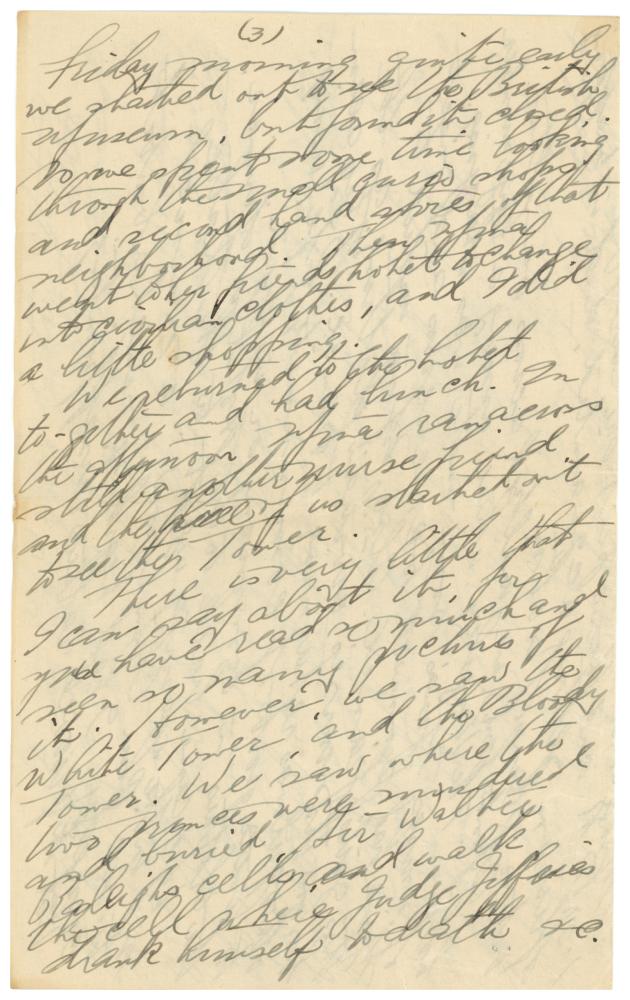 (3)
Friday morning quite early
we started out to see the British
Museum, but found it closed.
So we spent some time looking
through the small shops
and second hand stores of that
neighborhood. Then
went to her friends hotel to change
into civilian clothes, and I did
a little shopping.
We returned to the hotel
to-gether and had lunch. In
the afternoon ran across
still another nurse friend
and the of us started out
to see the Tower.
There is very little that
I can say about it, for
you have read so much and
seen so many pictures of
it. However, we saw the
White Tower, and the Bloody
Tower. We saw where the
two princes were murdered
and buried, Sir Walter
Raleighs cell, and walk
the cell where Judge Jeffries
drank himself to death &c.